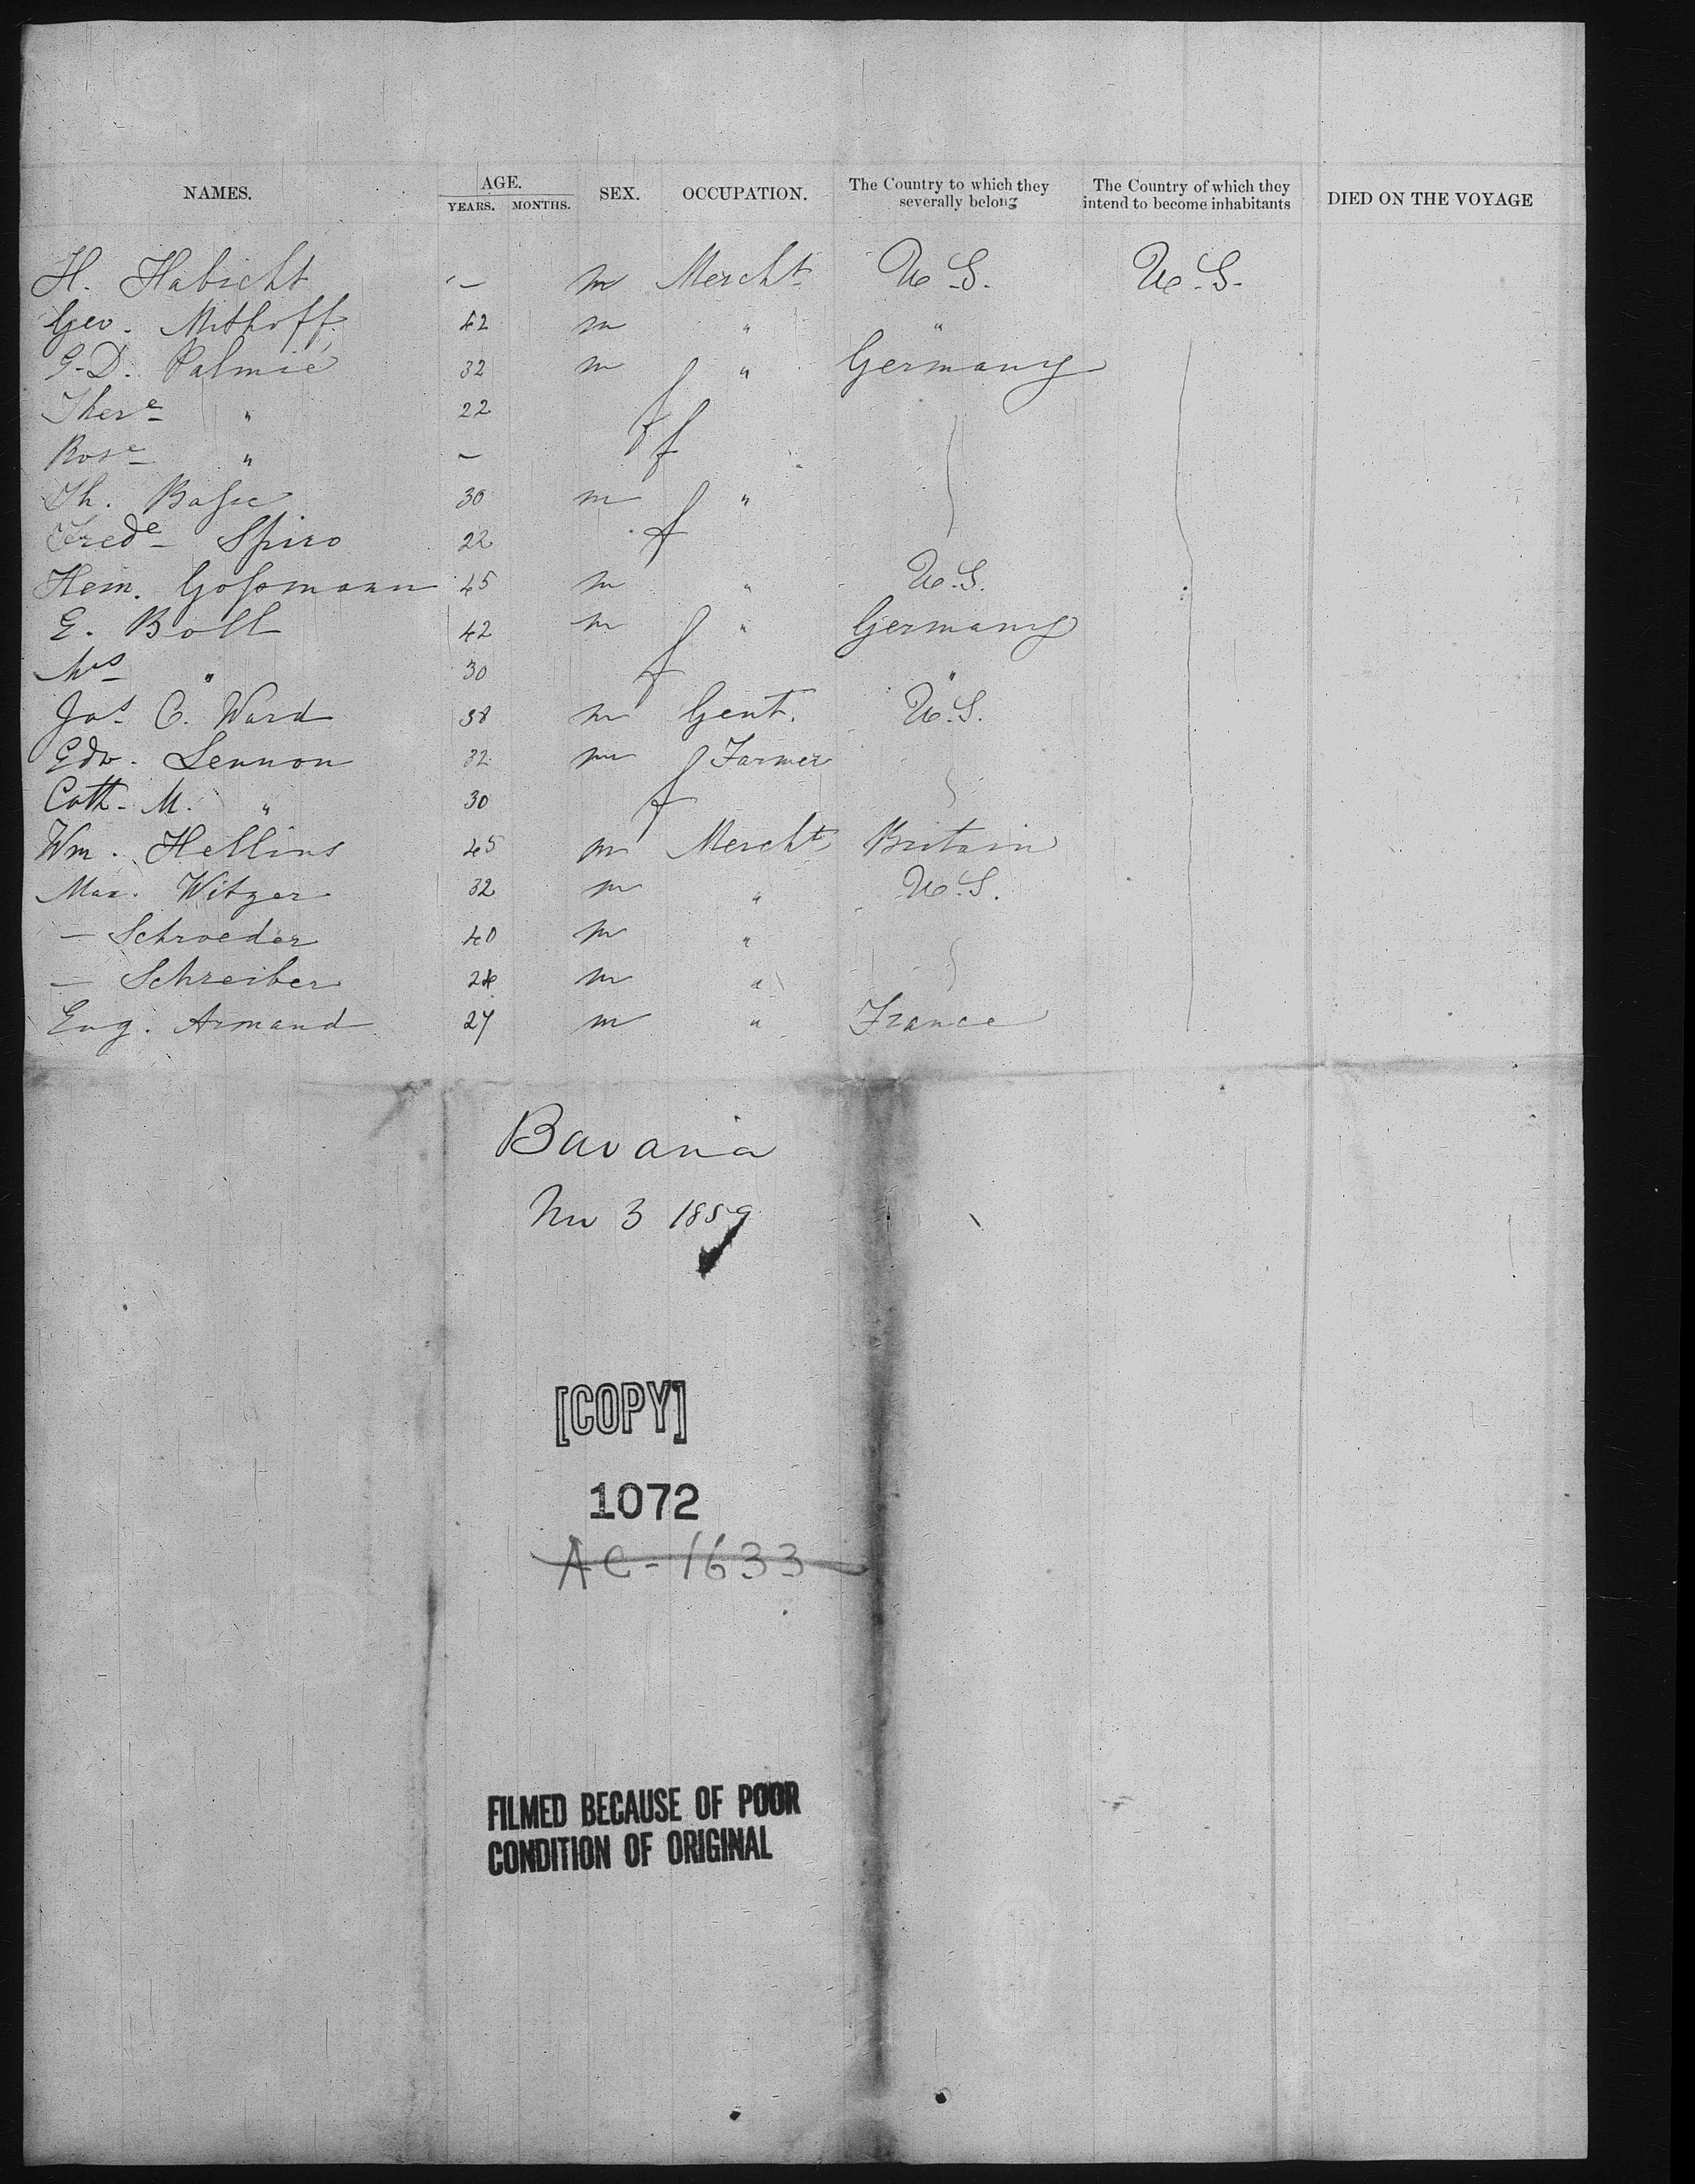 NAMES. AGE. SEX. OCCUPATION. The Country to which they severally belong The Country of which they intend to become inhabitants DIED ON THE VOYAGE
YEARS. MONTHS.
H. Habicht — m Mercht U.S. U.S.
Geo. Mithoff 42 m " "
G.D. Palmié 32 m " Germany
There " 22 f
Rose " — f
Th. Basse 30 m "
Frede Spiro 22 f
Hem. Gossmann 45 m " U.S.
E. Boll 42 m " Germany
Mrs " 30 f "
Jas C. Ward 38 m Gent. U.S.
Edw. Lennon 32 m Farmer
Cath. M. " 30 f
Wm. Hellins 45 m Mercht Britain
Max. Witzer 32 m " U.S.
— Schroeder 40 m "
— Schreiber 24 m "
Eug. Armand 27 m " France
Bavaria
Nov 3 1859
[COPY]
1072
AC-1633
FILMED BECAUSE OF POOR
CONDITION OF ORIGINAL